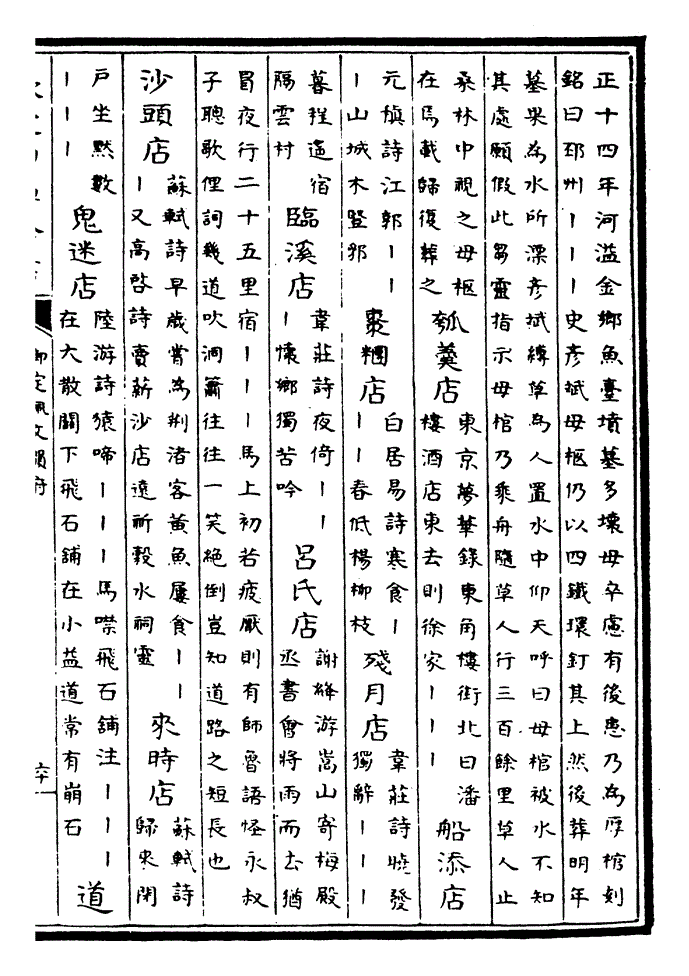 正十四年河溢金鄉魚臺墳墓多壞毋卒慮有後患乃為厚棺刻
銘曰邳州｜｜｜史彥斌母柩仍以四鐵環釘其上然後葬明年
墓果為水所漂彥斌縛草為人置水中仰天呼曰母棺被水不知
其處願假此芻靈指示母棺乃乘舟隨草人行三百餘里草人止
桑林中視之母柩
在焉載歸復葬之
瓠羹店
東京夢華錄東角樓街北曰潘
樓酒店東去則徐家｜｜｜
船添店
元稹詩江郭｜｜
｜山城木豎郛
棗糰店
白居易詩寒食｜
｜｜春低楊柳枝
殘月店
韋莊詩曉發
獨辭｜｜｜
暮程遥宿
隔雲村
臨溪店
韋莊詩夜倚｜｜
｜懷鄉獨苦吟
呂氏店
謝絳游嵩山寄梅殿
丞書會將雨而去猶
冒夜行二十五里宿｜｜｜馬上初若疲厭則有師魯語怪永叔
子聰歌俚詞幾道吹洞簫往往一笑絕倒豈知道路之短長也
沙頭店
蘇軾詩早歲嘗為荆渚客黃魚屢食｜｜
｜又高啟詩賣薪沙店遠祈穀水祠靈
來時店
蘇軾詩
歸來閉
戶坐默數
｜｜｜
鬼迷店
陸游詩猿啼｜｜｜馬噤飛石舖注｜｜｜
在大散關下飛石舖在小益道常有崩石
道
御定佩文韻府